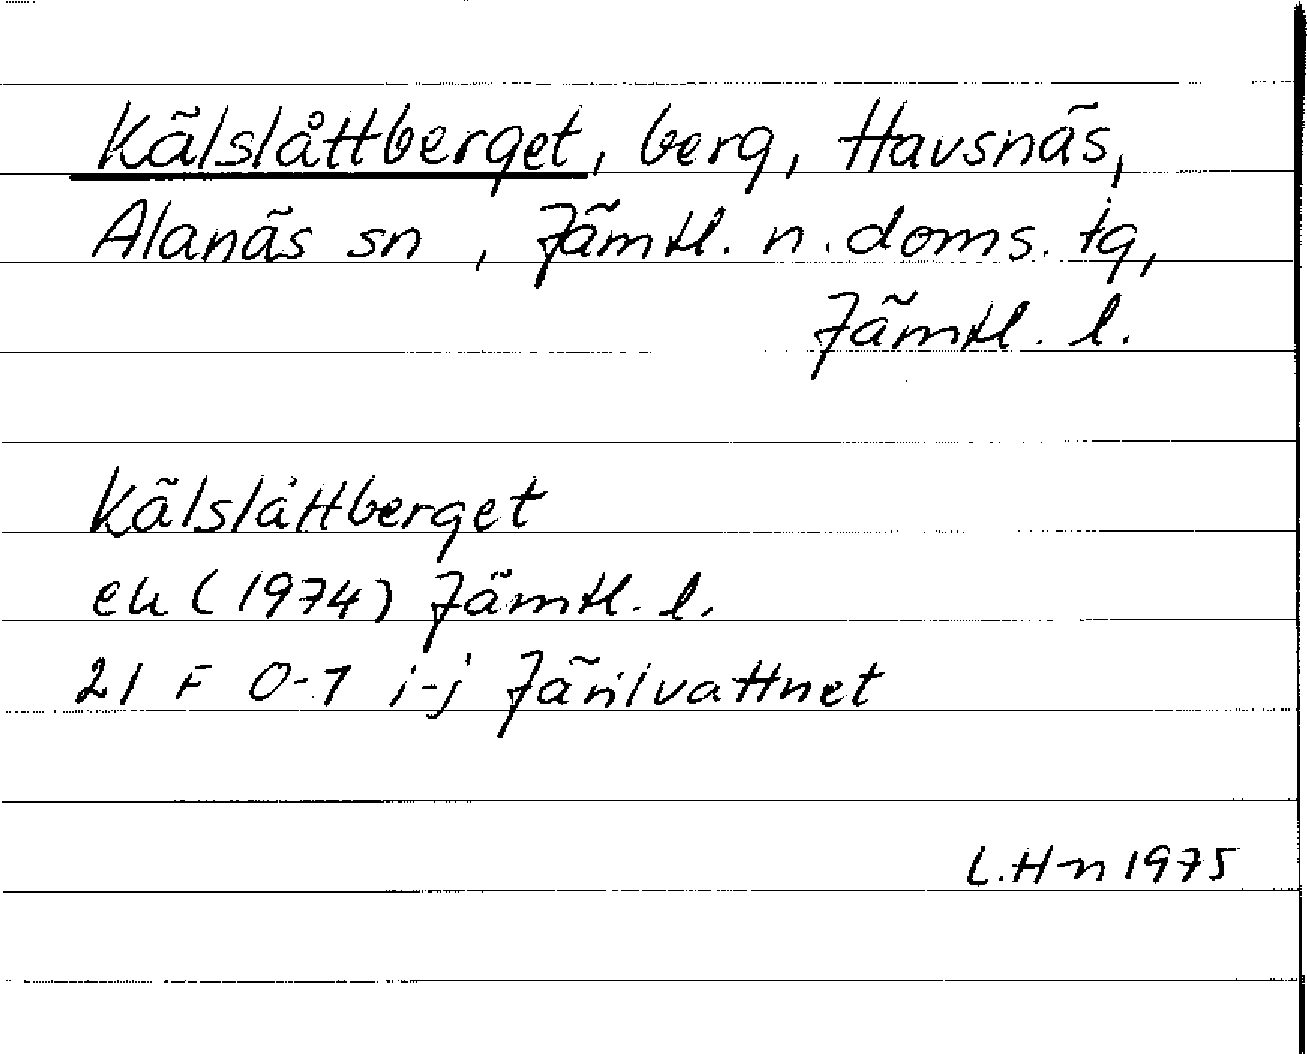 Kälslåttberget, berg, Havsnäs,
Alanäs sn, Jämtl. n. doms. tg,
Jämtl. l.
Kälslåttberget
ek (1974) Jämtl. l.
21 F 0-1 i-j Järilvattnet
L.H-n 1975